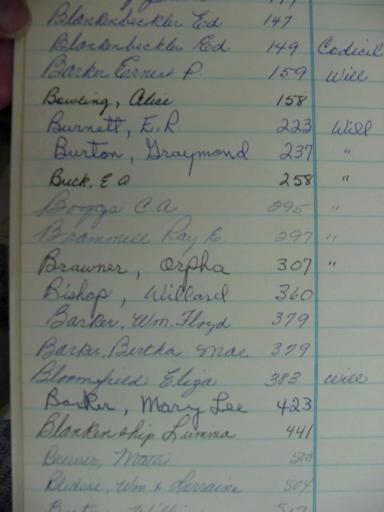 Blankenbeckler Ed 147
Blankenbeckler Ed 149 Codicil
Barker Ernest P. 159 Will
Bowling, Alice 158
Burnett, E.R 223 Will
Burton, Graymond 237 "
Buck, E a 258 "
Boggs C.A 295 "
Brammell Ray E. 297 "
Brawner, Orpha 307 "
Bishop, Willard 360
Barker, Wm. Floyd 379
Barker, Bertha Mae 379
Bloomfield Eliza 383 will
Barker, Mary Lee 423
Blankenship Lumma 441
Brewer, Mattie 500
Wm & Lorraine 504